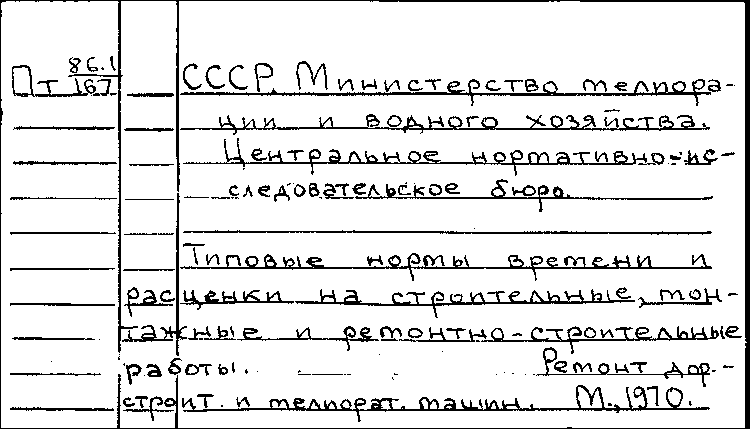 Пт 86.1/167 СССР. Министерство мелиора-
ции и водного хозяйства.
Центральное нормативно-ис-
следовательское бюро.
Типовые нормы времени и
расценки на строительные, мон-
тажные и ремонтно-строительные
работы. Ремонт дор.-
строит. и мелиорат. машин. М., 1970.